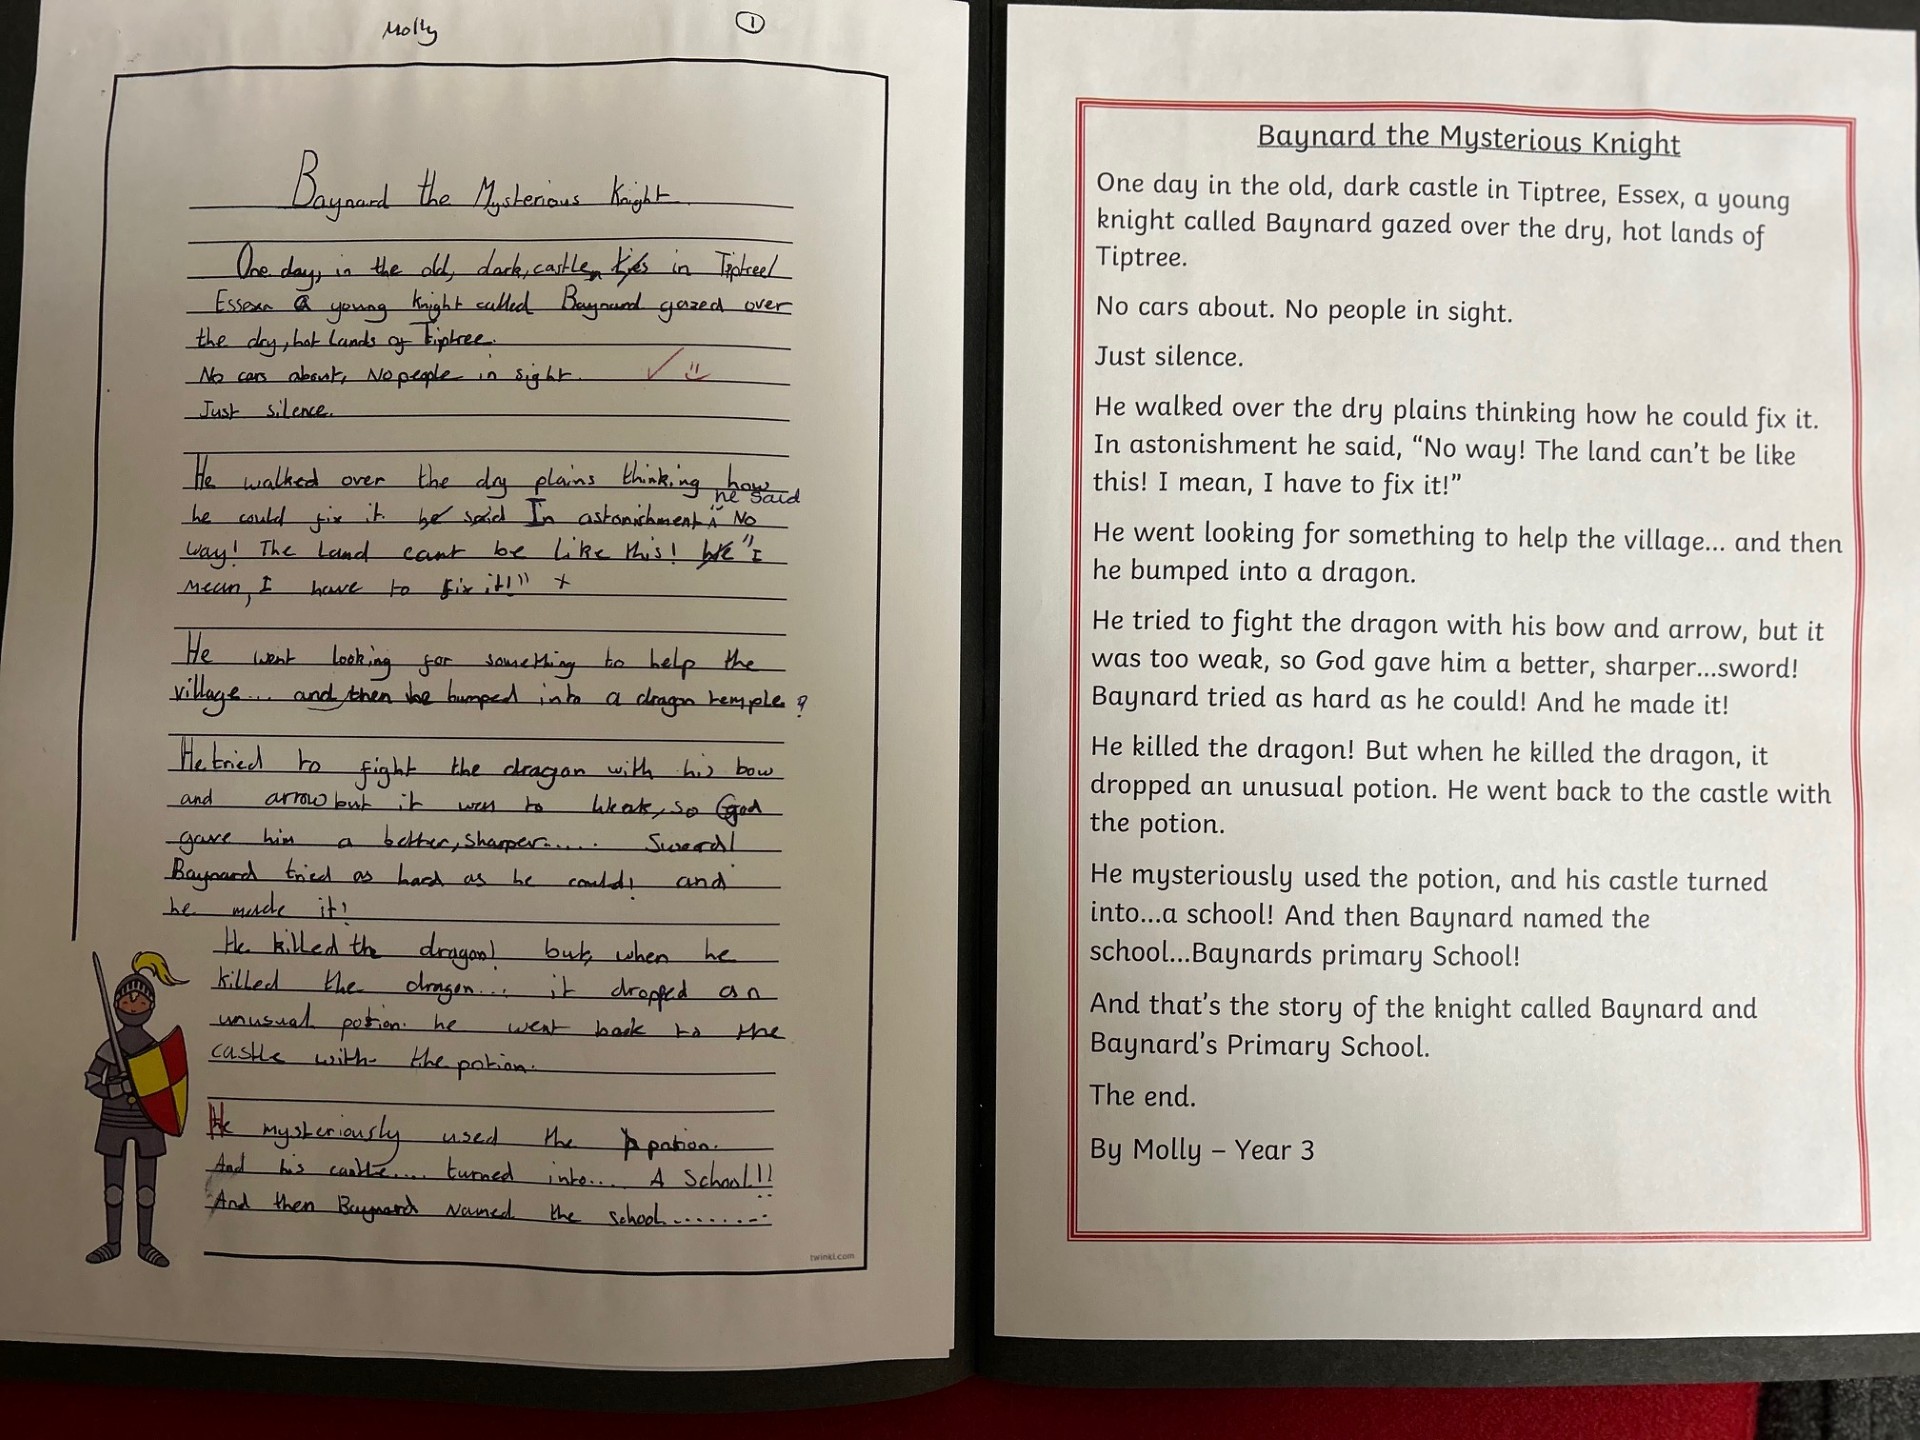 Molly
1
Baynard the Mysterious Knight
One day, in the old, dark, castle, in Tiptree
Essex a young Knight called Baynard gazed over
the dry, hot lands of Tiptree.
No cars about, No people in sight.
Just silence.
He walked over the dry plains thinking how
he said
he could fix it. he said In astonishment " No
way! The Land cant be like this! "I
mean, I have to fix it!" +
He went looking for something to help the
village... and then he bumped into a dragon temple ?
He tried to fight the dragon with his bow
and arrow but it was to Weak, so God
gave him a better, sharper..... Sword!
Baynard tried as hard as he could! and
he made it!
He killed the dragon! but, when he
killed the dragon... it dropped an
unusual potion. he went back to the
castle with the potion.
He mysteriously used the potion.
And his castle.... turned into.... A School!!
And then Baynard Named the school........
twinkl.com
Baynard the Mysterious Knight
One day in the old, dark castle in Tiptree, Essex, a young
knight called Baynard gazed over the dry, hot lands of
Tiptree.
No cars about. No people in sight.
Just silence.
He walked over the dry plains thinking how he could fix it.
In astonishment he said, “No way! The land can’t be like
this! I mean, I have to fix it!”
He went looking for something to help the village... and then
he bumped into a dragon.
He tried to fight the dragon with his bow and arrow, but it
was too weak, so God gave him a better, sharper...sword!
Baynard tried as hard as he could! And he made it!
He killed the dragon! But when he killed the dragon, it
dropped an unusual potion. He went back to the castle with
the potion.
He mysteriously used the potion, and his castle turned
into...a school! And then Baynard named the
school...Baynards primary School!
And that’s the story of the knight called Baynard and
Baynard’s Primary School.
The end.
By Molly – Year 3